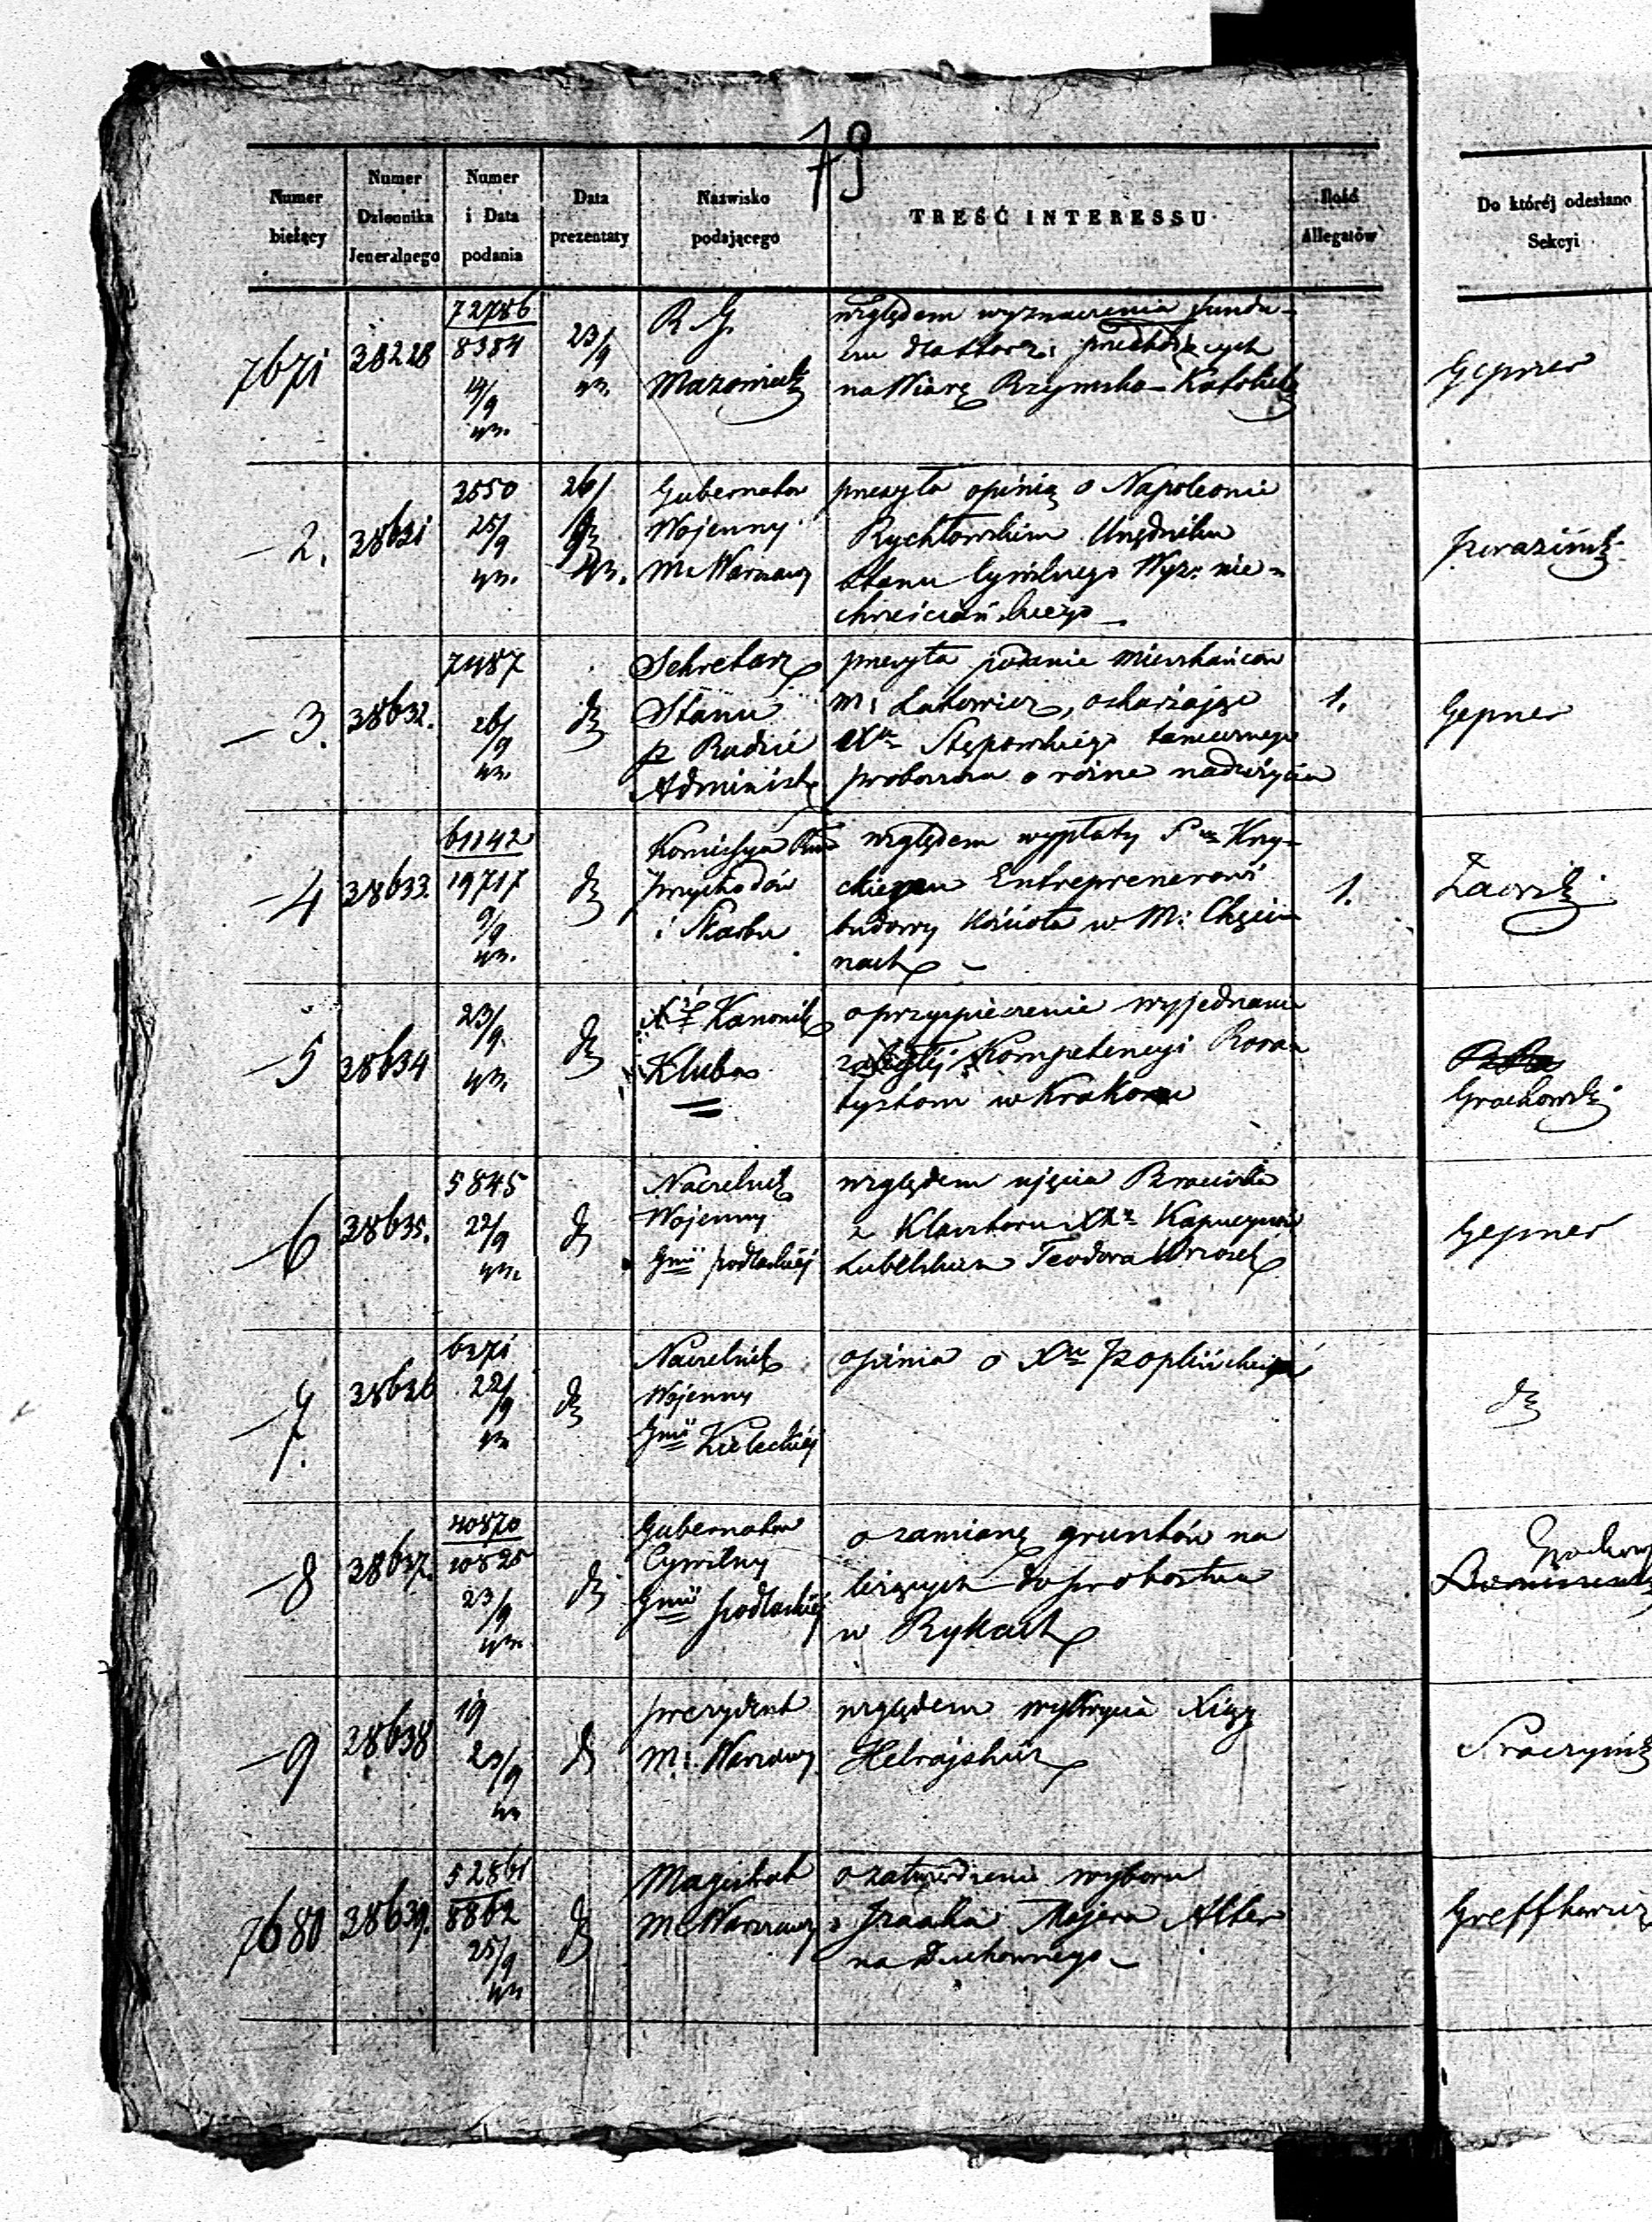 79
Numer bieżący
Numer Dziennika Jeneralnego
Numer i Data podania
Data prezentaty
Nazwisko podającego
TREŚĆ INTERESSU
Ilość Allegatów
Do któréj odesłano Sekcyi
7671
38228
72786
8384
23/9
R. G.
Mazowieck
względem wyznaczenia fundu-
na Wiarę Rzymsko-Katolick
Gepner
2.
38631
2550
25/9
26/9
Gubernator
Wojenny
m. Warszawy
przesyła opinią o Napoleonie
Rychłowskim Urzędniku
Stanu Cywilnego Wyz. nie-
chrześciańskiego
3.
38632.
7487
26/9
Sekretarz
Stanu
p Radzie
Administ
przesyła podanie mieszkańców
oskarżające
Xa Stępowskiego tamecznego
proboszcza o różne nadużycia
1.
Gepner
4
38633.
61142
19717
9/9
Komissya
Przychodów
i Skarbu
względem wypłaty
Entreprenerowi
budowy Kościoła w M: Chęci-
nach
1.
5
38634
23/9
Kanonik
Kluba
o przyspieszenie wyjednania
Kompetencyi Rora-
tystom w Krakowie
Grochowski
6
38635.
5845
22/9
Naczelnik
Wojenny
Gnii podlaskiéj
względem ujęcia Braciszka
z Klasztoru XX Kapucynów
Lubelskich Teodora Wrzosek
Gepner
7.
38636
6371
22/9
Naczelnik
Wojenny
Gnii Kieleckiéj
opinia o Xu
8
38637.
40870
10825
23/9
Gubernator
Cywilny
Gnii podlaskiéj
o zamianę gruntów na
leżących do probostwa
w Rykach
9
38638
19
23/9
prezydent
m. Warszawy
względem wykrycia Xiąg
Hebrajskich
7680
38639.
52861
8862
25/9
Magistrat
m. Warszawy
o zatwierdzenie wyboru
Izaaka Majera Alter
na Duchownego